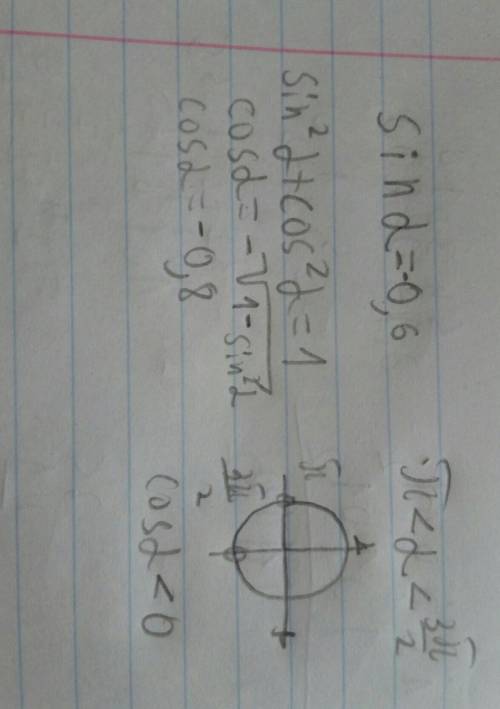 sin α = -0,6 π < α < 3π/2
sin²α + cos²α = 1
π
cos α = -√(1 - sin²α)
3π/2
cos α = -0,8
cos α < 0